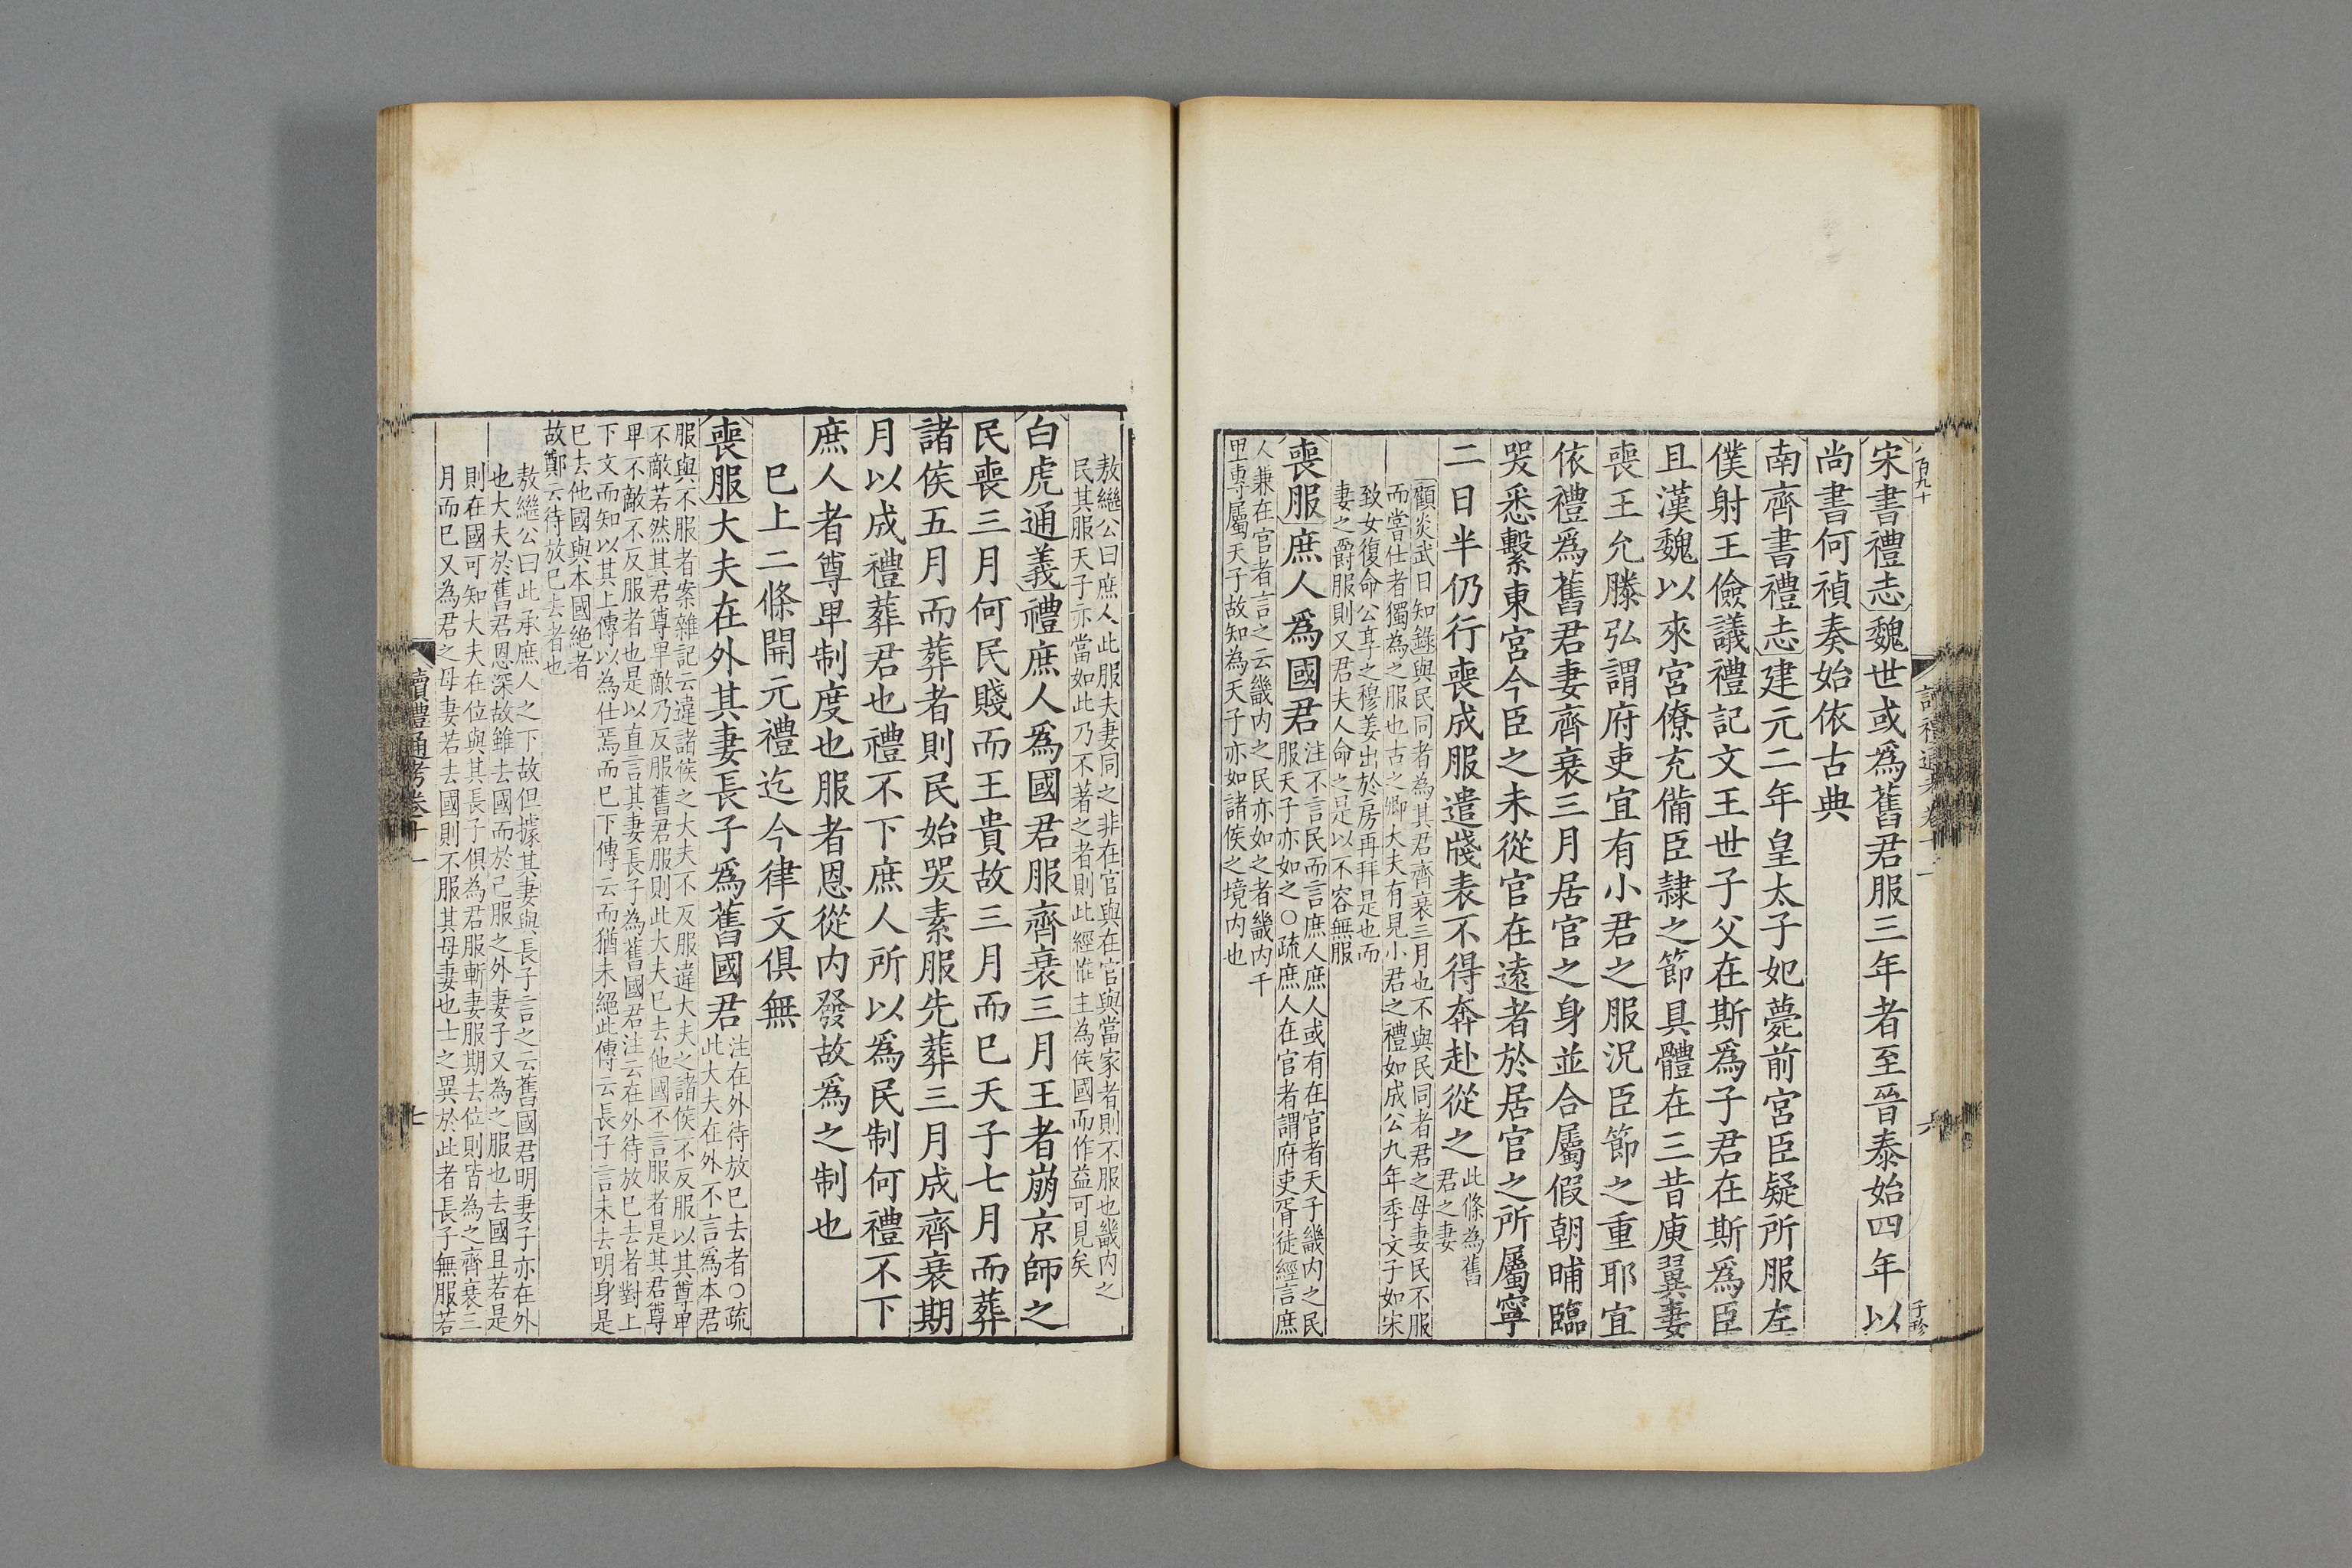 宋書禮志魏世或爲舊君服三年者至晉泰始四年以
尚書何禎奏始依古典
南齊書禮志建元二年皇太子妃薨前宮臣疑所服左
僕射王儉議禮記文王世子父在斯爲子君在斯爲臣
且漢魏以來宮僚充備臣隷之節具體在三昔庾翼妻
喪王允滕弘謂府吏宜有小君之服況臣節之重耶宜
依禮爲舊君妻齊衰三月居官之身並合屬假朝晡臨
哭悉繫東宮今臣之未從官在遠者於居官之所屬寧
二日半仍行喪成服遣牋表不得奔赴從之此條為舊
君之妻
顧炎武日知錄與民同者為其君齊衰三月也不與民同者君之母妻民不服
而嘗仕者獨為之服也古之卿大夫有見小君之禮如成公九年季文子如宋
致女復命公享之穆姜出於房再拜是也而
妻之爵服則又君夫人命之是以不容無服
喪服庶人爲國君注不言民而言庶人庶人或有在官者天子畿内之民
服天子亦如之○疏庶人在官者謂府吏胥徒經言庶
人兼在官者言之云畿内之民亦如之者畿内千
里專屬天子故知為天子亦如諸侯之境内也
敖繼公曰庶人此服夫妻同之非在官與在官與當家者則不服也畿内之
民其服天子亦當如此乃不著之者則此經惟主為侯國而作益可見矣
白虎通義禮庶人爲國君服齊衰三月王者崩京師之
民喪三月何民賤而王貴故三月而已天子七月而葬
諸侯五月而葬者則民始哭素服先葬三月成齊衰期
月以成禮葬君也禮不下庶人所以爲民制何禮不下
庶人者尊卑制度也服者恩從内發故爲之制也
已上二條開元禮迄今律文俱無
喪服大夫在外其妻長子爲舊國君注在外待放已去者○疏
此大夫在外不言為本君
服與不服者案雜記云違諸侯之大夫不反服違大夫之諸侯不反服以其尊卑
不敵若然其君尊卑敵乃反服舊君服則此大夫已去他國不言服者是其君尊
卑不敵不反服者也是以直言其妻長子為舊國君注云在外待放已去者對上
下文而知以其上傳以為仕焉而已下傳云而猶未絕此傳云長子言未去明身是
已去他國與本國絶者
故鄭云待放已去者也
敖繼公曰此承庶人之下故但據其妻與長子言之云舊國君明妻子亦在外
也大夫於舊君恩深故雖去國而於已服之外妻子又為之服也去國且若是
則在國可知大夫在位與其長子俱為君服斬妻服期去位則皆為之齊衰三
月而已又為君之母妻若去國則不服其母妻也士之異於此者長子無服若
讀禮通考卷十一
七
六